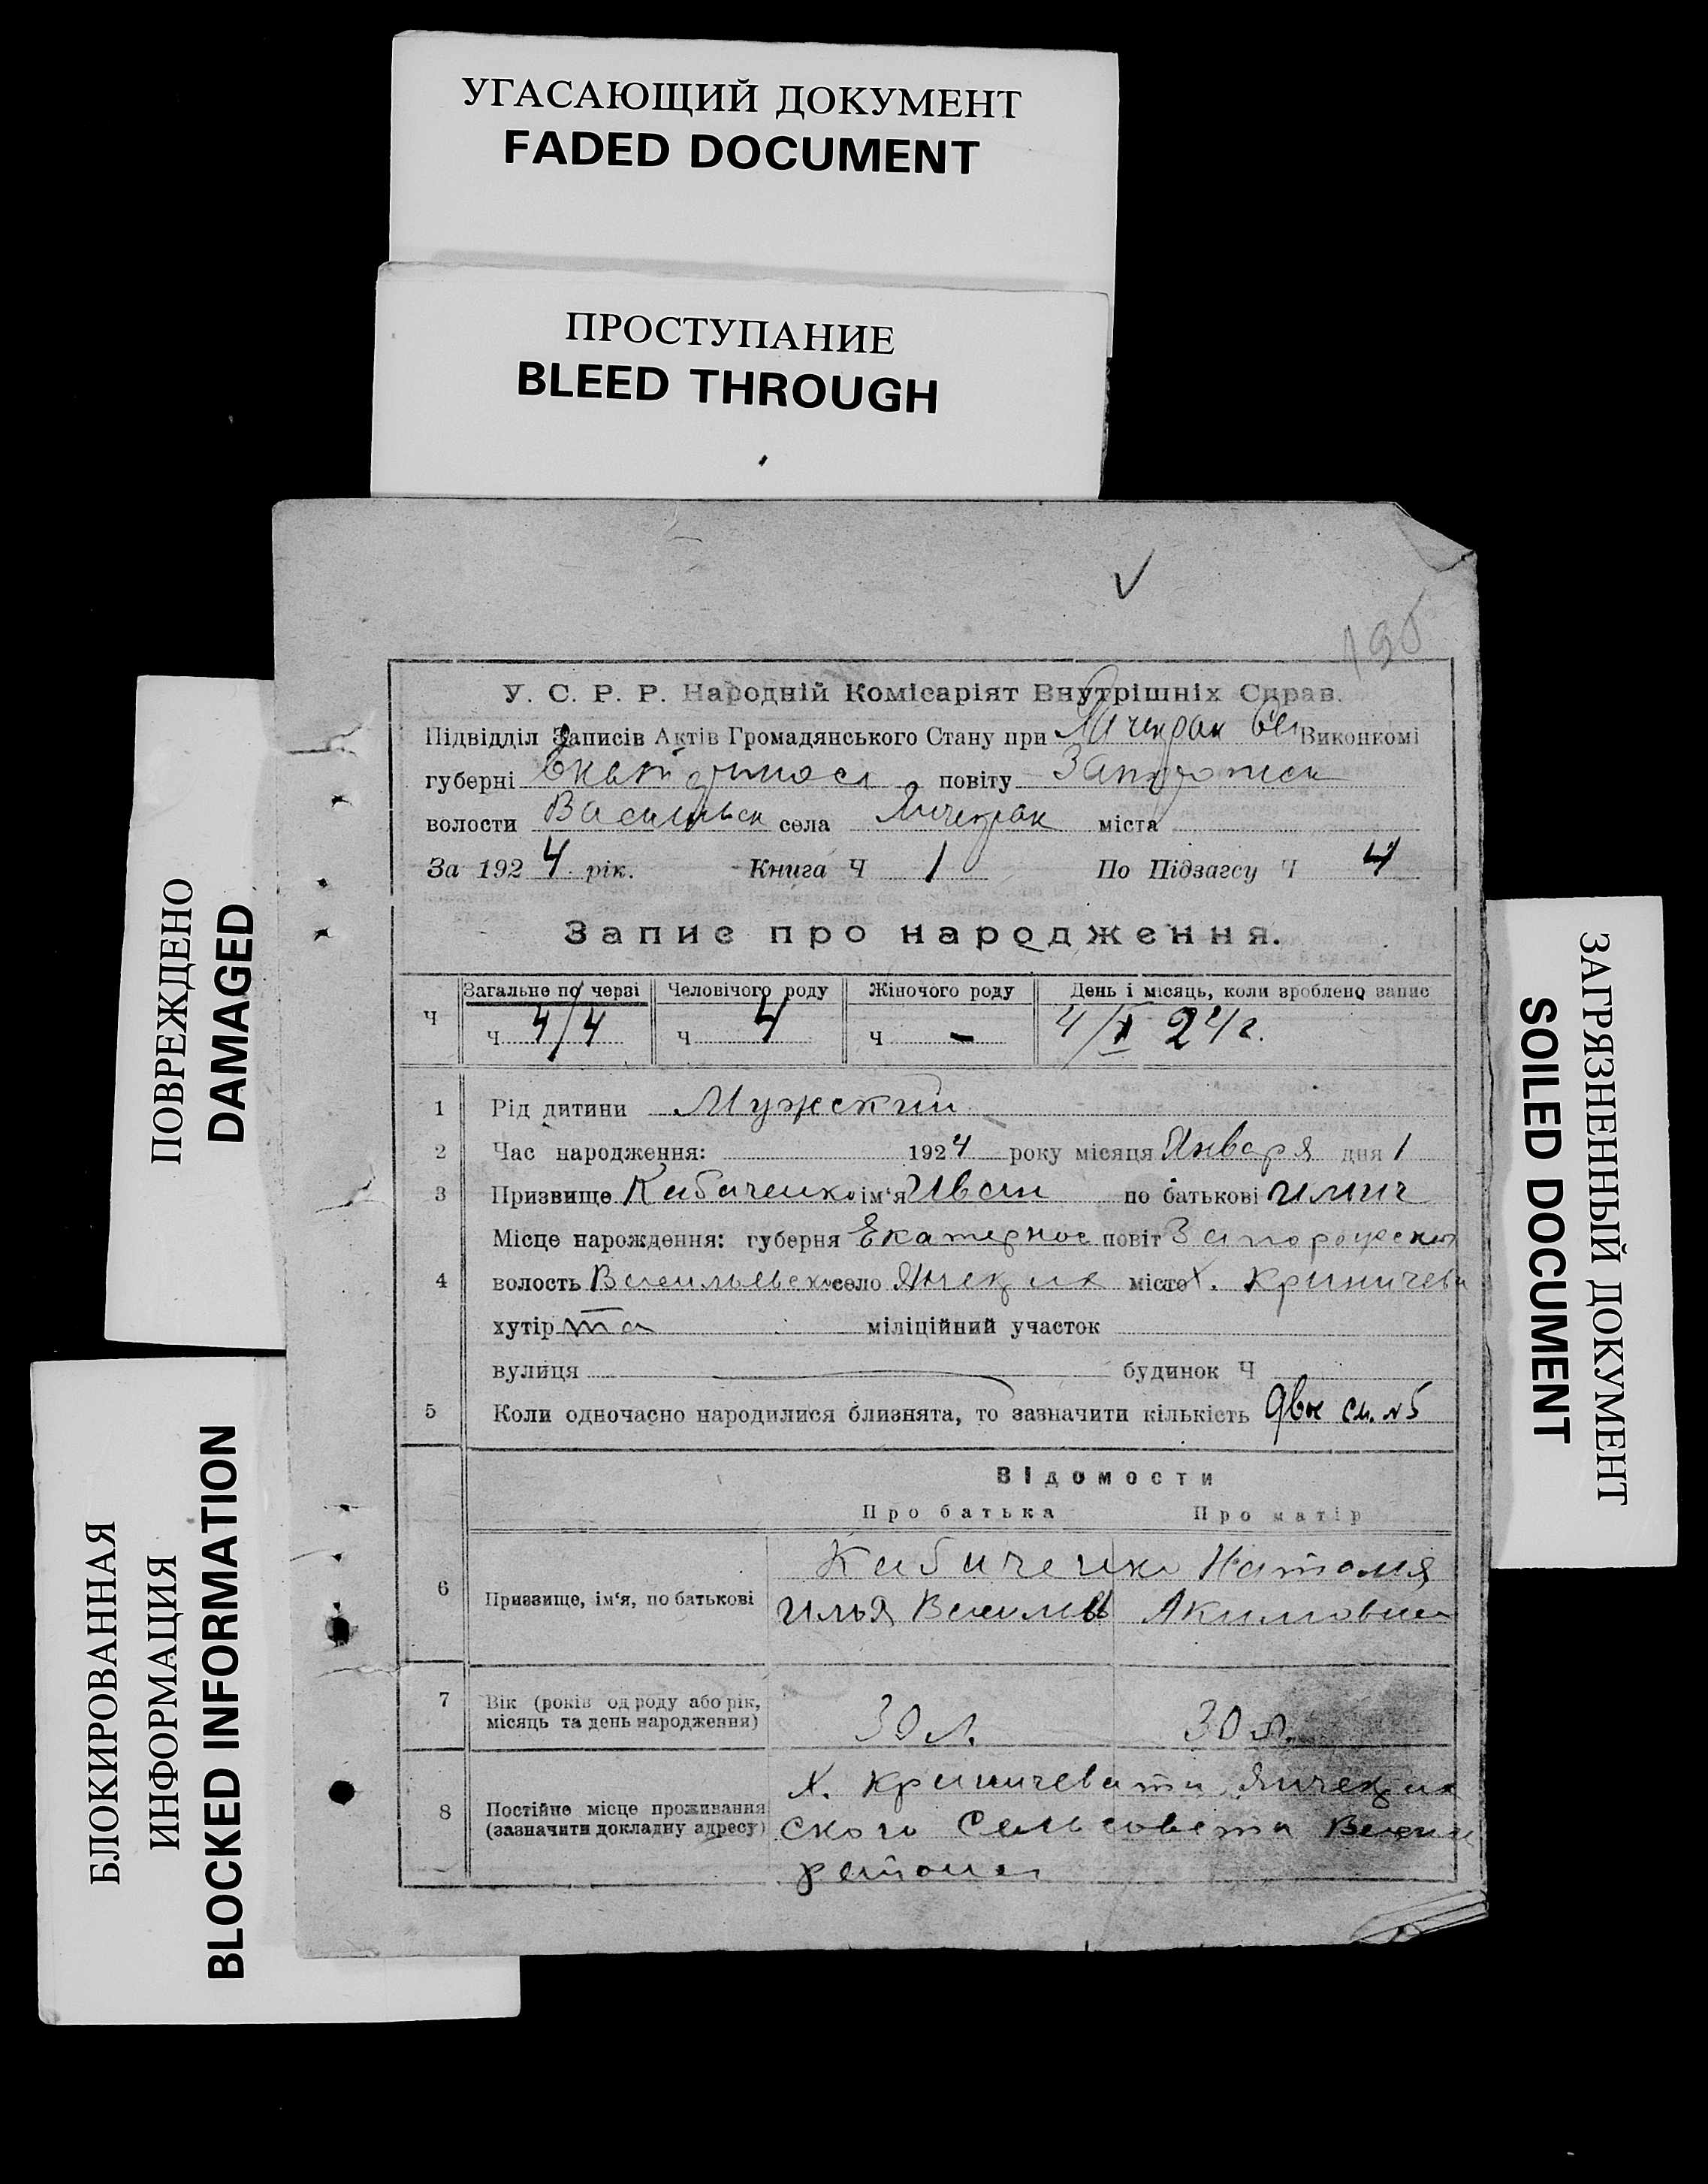 УГАСАЮЩИЙ ДОКУМЕНТ
FADED DOCUMENT
ПРОСТУПАНИЕ
BLEED THROUGH
ПОВРЕЖДЕНО
DAMAGED
БЛОКИРОВАННАЯ
ИНФОРМАЦИЯ
BLOCKED INFORMATION
ЗАГРЯЗНЕННЫЙ ДОКУМЕНТ
SOILED DOCUMENT
195
У. С. Р. Р. Народній Комісаріят Внутрішніх Справ.
Підвідділ Записів Актів Громадянського Стану при Виконкомі
губерні повіту
волости Васильск села Янчекрак міста
За 1924 рік. Книга Ч 1 По Підзагсу Ч 4
Запис про народження.
Ч Загальне по черзі Человічого роду Жіночого роду День і місяць, коли зроблено запис
Ч 4/4 Ч 4 Ч - 4/I 24 г.
1 Рід дитини Мужский
2 Час народження: 1924 року місяця Января дня 1
3 Призвище Кабаченко ім'я Иван по батькові Илич
Місце нарождення: губерня Екатернос повіт Запорожской
4 волость Васильевск село Янчекрак місто х. Криничева
хутір та міліційний участок
вулиця будинок Ч
5 Коли одночасно народилися близнята, то зазначити кількість двое см. №5
Відомости
Про батька Про матір
6 Призвище, ім'я, по батькові Кабаченко Наталия
Илья Василь Акимовна
7 Вік (років од роду або рік, місяць та день народження) 30 л. 30 л.
8 Постійне місце проживання (зазначити докладну адресу) х. Криничевати Янчекрак
ского Сельсовета Васил
района